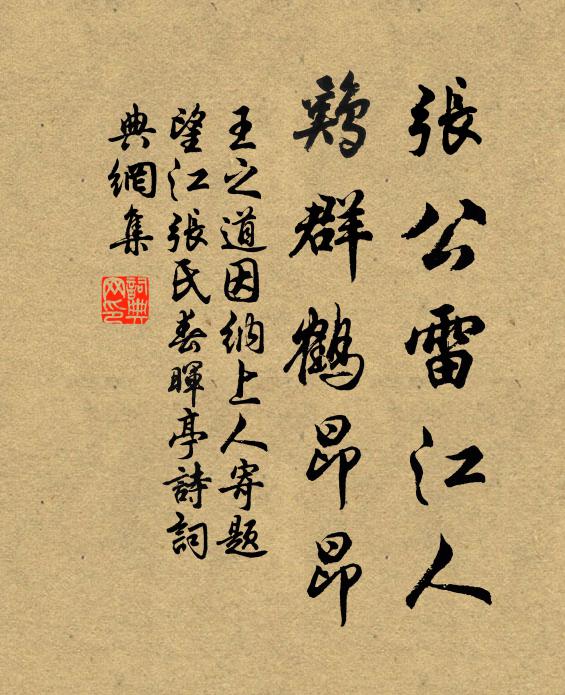 張公雷江人
鷄群鶴昂昂
王之道因納上人寄題
望江張氏春暉亭詩詞
典網集
詞典网印